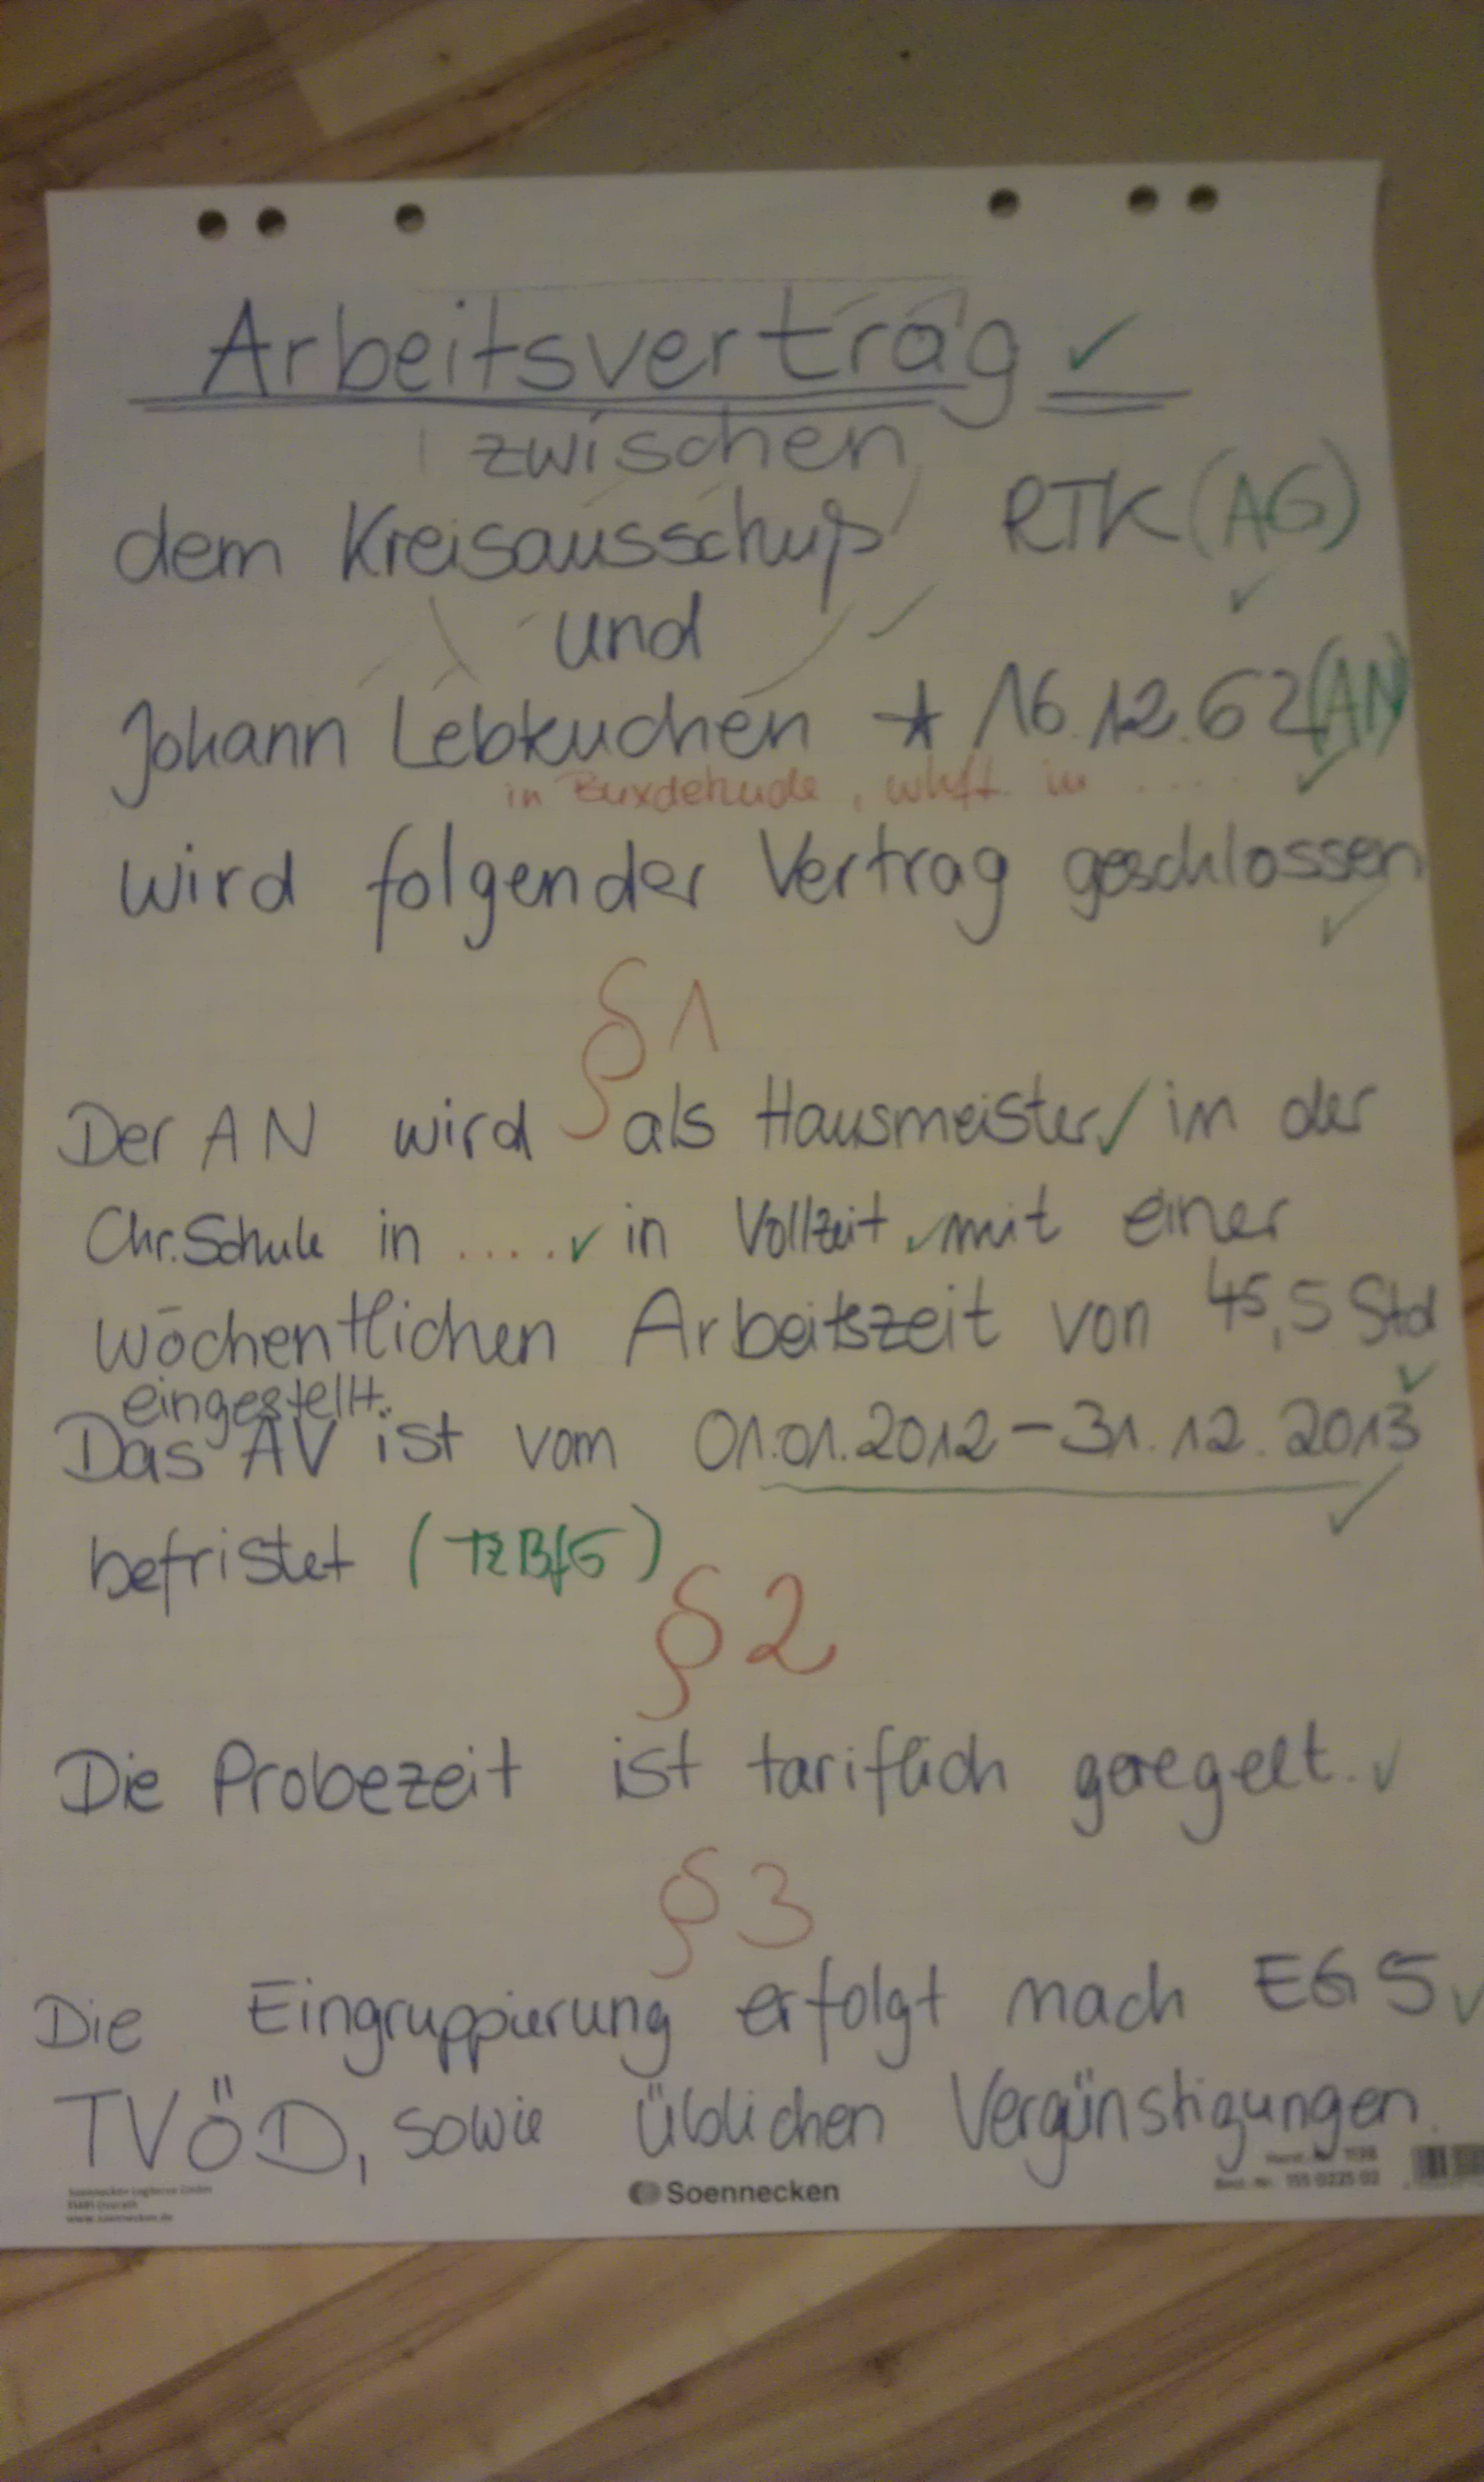 Arbeitsvertrag ✓
zwischen
dem Kreisausschuß RTK (AG)
und
Johann Lebkuchen * 16.12.62 (AN)
in Buxdehude, whft in ....
wird folgender Vertrag geschlossen
§ 1
Der AN wird als Hausmeister in der
Chr. Schule in ..... in Vollzeit mit einer
wöchentlichen Arbeitszeit von 45,5 Std
eingestellt.
Das AV ist vom 01.01.2012 - 31.12.2013
befristet (TzBfG)
§ 2
Die Probezeit ist tariflich geregelt.
§ 3
Die Eingruppierung erfolgt nach EG 5
TVÖD, sowie üblichen Vergünstigungen.
www.soennecken.de
Soennecken